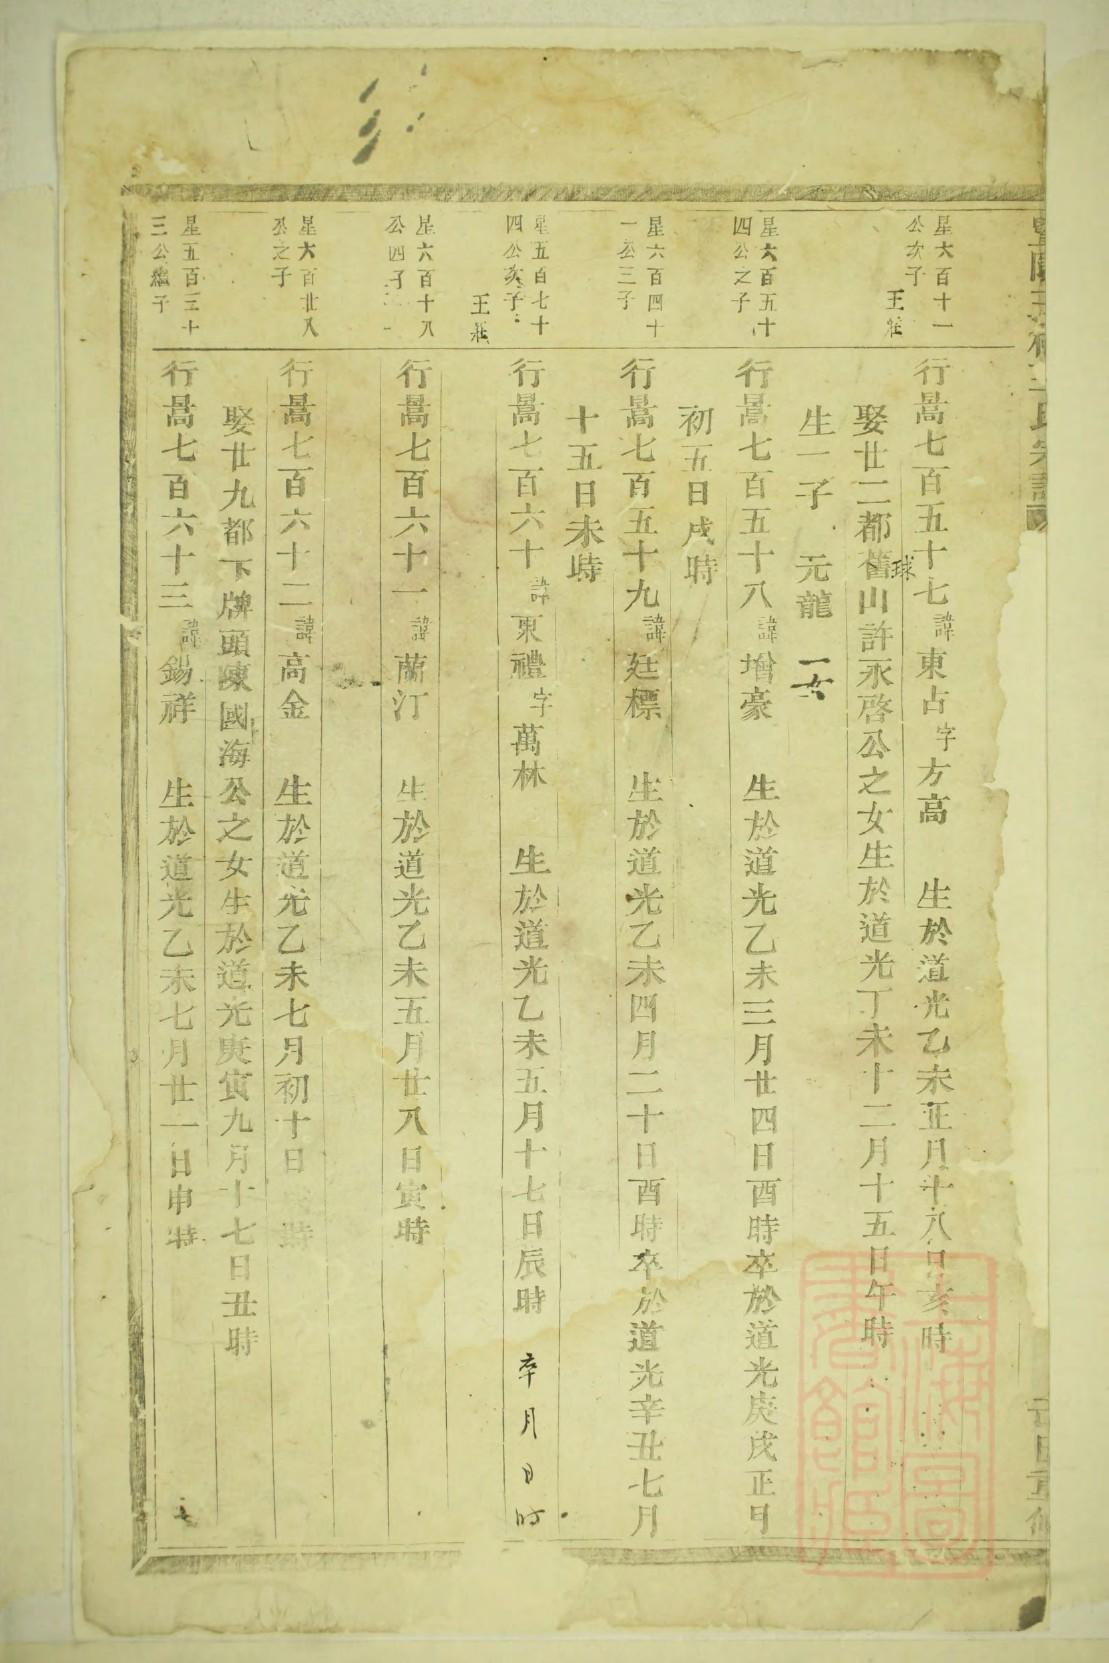 星六百十一
公次子
王莊
行暠七百五十七諱東占字方高 生於道光乙未正月十八日亥時
娶廿二都舊山許永啓公之女生於道光丁未十二月十五日午時
球
生一子 元龍 一女
星六百五十
四公之子
行暠七百五十八諱增豪 生於道光乙未三月廿四日酉時卒於道光庚戌正月
初五日戌時
星六百四十
一公三子
行暠七百五十九諱廷標 生於道光乙未四月二十日酉時卒於道光辛丑七月
十五日未時
星五百七十
四公次子
王莊
行暠七百六十諱東禮字萬林 生於道光乙未五月十七日辰時 卒月日时
星六百十八
公四子
行暠七百六十一諱蘭汀 生於道光乙未五月廿八日寅時
星六百廿八
公之子
行暠七百六十二諱高金 生於道光乙未七月初十日 時
娶廿九都下牌頭陳國海公之女生於道光庚寅九月十七日丑時
星五百三十
三公繼子
行暠七百六十三諱錫祥 生於道光乙未七月廿一日申時